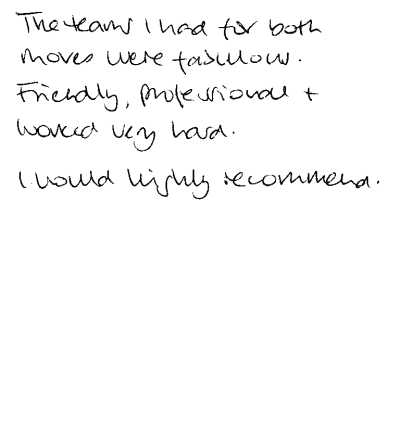 The teams I had for both
moves were fabulous.
Friendly, professional +
worked very hard.
I would highly recommend.